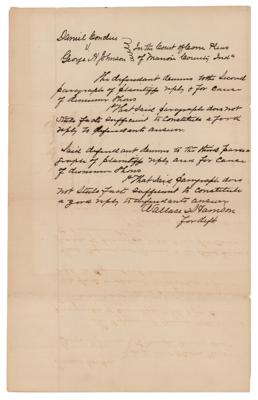 Daniel Conder
vs
George H Johnson
In the Court of Com Pleas
of Marion County Indª
The defendant demurs to the Second
paragraph of plaintiffs reply & for Cause
of demurrer Shows
1st That Said paragraph does not
State facts sufficient to constitute a good
reply to defendants answer
Said defendant demurs to the third para-
graph of plaintiffs reply and for Cause
of demurrer Shows
1st That Said paragraph does
not State facts sufficient to constitute
a good reply to defendants answer
Wallace & Harrison
for deft